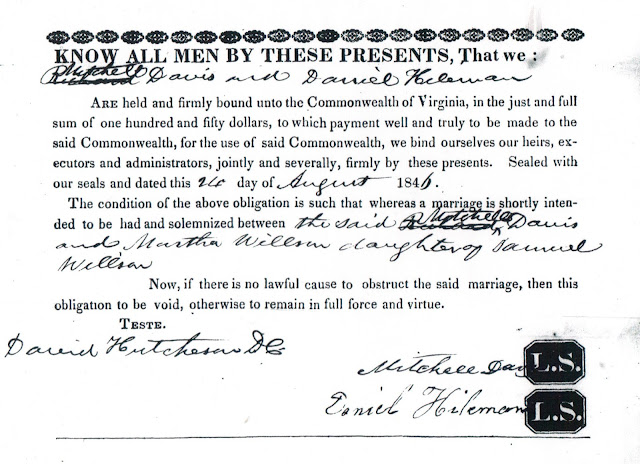 KNOW ALL MEN BY THESE PRESENTS, That we :
Mitchell
Richard Davis and Daniel Hileman
ARE held and firmly bound unto the Commonwealth of Virginia, in the just and full
sum of one hundred and fifty dollars, to which payment well and truly to be made to the
said Commonwealth, for the use of said Commonwealth, we bind ourselves our heirs, ex-
ecutors and administrators, jointly and severally, firmly by these presents. Sealed with
our seals and dated this day of August 1846.
The condition of the above obligation is such that whereas a marriage is shortly inten-
Mitchell
ded to be had and solemnized between the said Richard Davis
and Martha Willson daughter of Samuel
Willson
Now, if there is no lawful cause to obstruct the said marriage, then this
obligation to be void, otherwise to remain in full force and virtue.
TESTE.
David Hutcheson DC
Mitchell Davis L.S.
Daniel Hileman L.S.